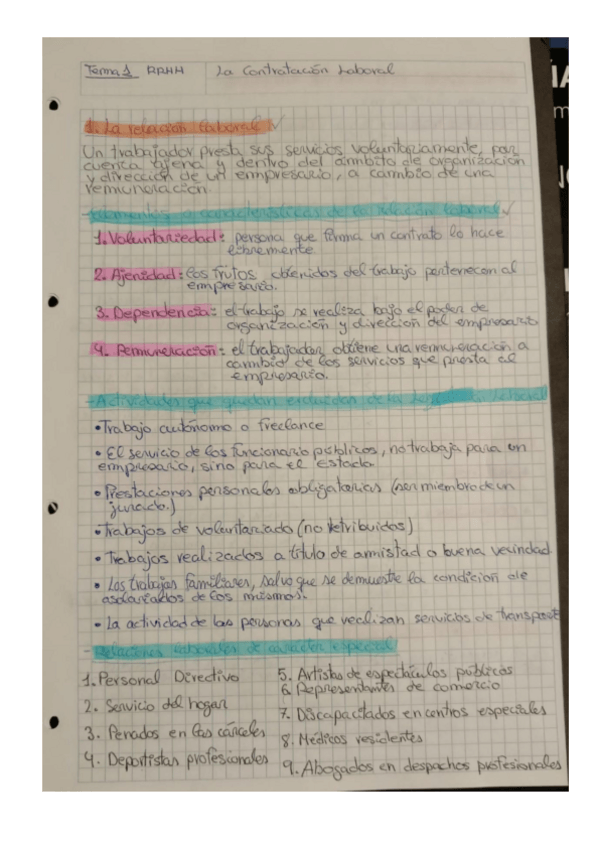 Tema 1 RRHH La Contratación Laboral
1. La relación laboral ✓
Un trabajador presta sus servicios voluntariamente, por
cuenta ajena y dentro del ámbito de organización
y dirección de un empresario, a cambio de una
remuneración
características de la relación laboral ✓
1. Voluntariedad: persona que firma un contrato lo hace
libremente.
2. Ajenidad: los frutos obtenidos del trabajo pertenecen al
empresario.
3. Dependencia: el trabajo se realiza bajo el poder de
organización y dirección del empresario
4. Remuneración: el trabajador obtiene una remuneración a
cambio de los servicios que presta al
empresario.
- Actividades que quedan excluidas de la laboral
• Trabajo autónomo o freelance
• El servicio de los funcionario públicos, no trabaja para un
empresario, sino para el estado.
• Prestaciones personales obligatorias (ser miembro de un
jurado.)
• Trabajos de voluntariado (no retribuidos)
• Trabajos realizados a título de amistad o buena vecindad
• Los trabajos familiares, salvo que se demuestre la condición de
asalariados de los mismos.
• La actividad de las personas que realizan servicios de transporte
- Relaciones laborales de carácter especial
1. Personal Directivo
2. Servicio del hogar
3. Penados en las cárceles
4. Deportistas profesionales
5. Artistas de espectáculos públicos
6. Representantes de comercio
7. Discapacitados en centros especiales
8. Médicos residentes
9. Abogados en despachos profesionales